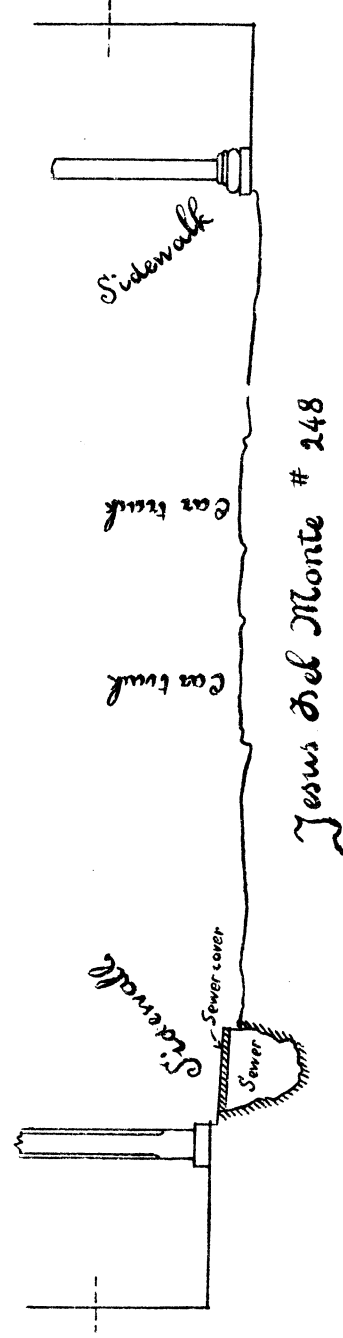 Sidewalk
Car track
Car track
Sidewalk
Sewer cover
Sewer
Jesus Del Monte # 248